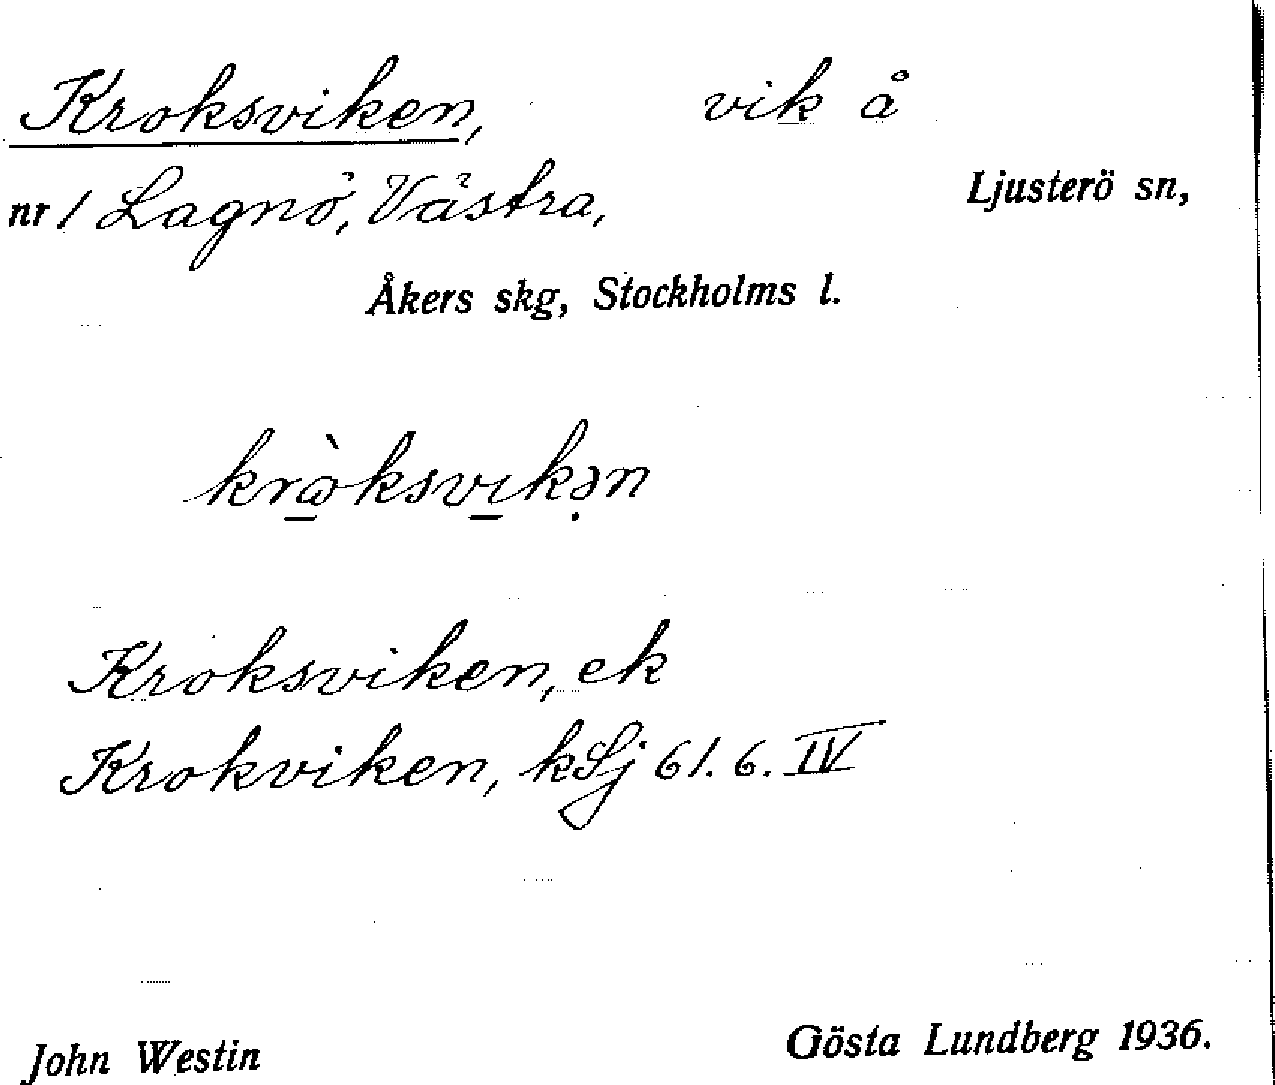 Kroksviken, vik å
nr 1 Lagnö, Västra, Ljusterö sn,
Åkers skg, Stockholms l.
Kroksviken, ek
Krokviken, kLj 61.6.IV
John Westin Gösta Lundberg 1936.